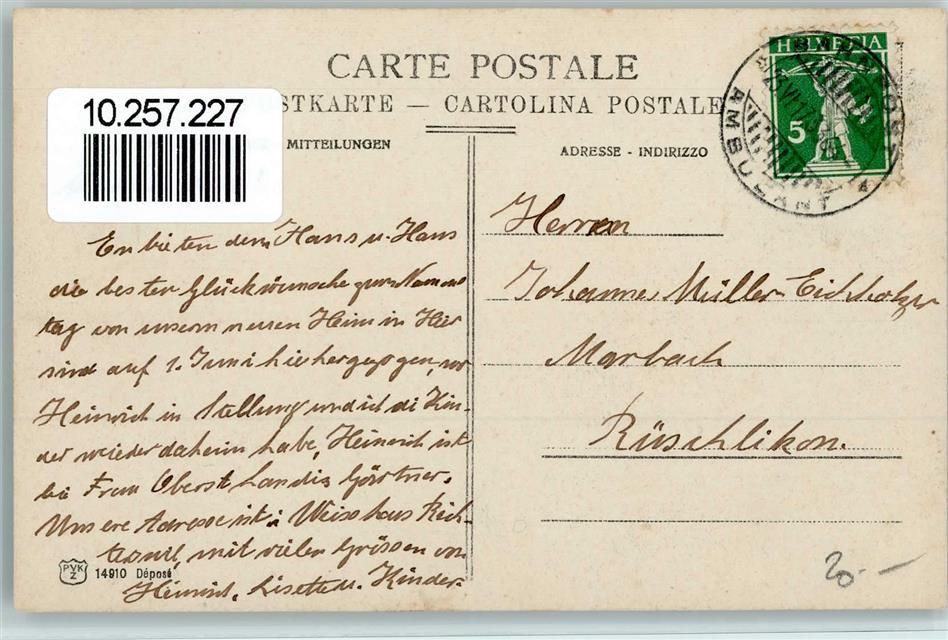 CARTE POSTALE
STKARTE — CARTOLINA POSTALE
10.257.227
MITTEILUNGEN
ADRESSE - INDIRIZZO
HELVETIA
5
AMBULANT
Enbieten dem Hans u. Hans
die besten Glückwünsche zum Namens
tag von unserm neuen Heim in Hier
sind auf 1. Juni hiehergezogen, wo
Heinrich in Stellung und ich di Kin-
der wieder daheim habe, Heinrich ist
bei Frau Oberst Landis Gärtner.
Unsere Adresse ist: Weisshaus Rich-
terswil, mit vielen Grüssen von
Heinrich, Lisette u. Kinder.
Herren
Johannes Müller-Eichholzer
Marbach
Rüschlikon.
PVK
Z
14910 Déposé
20.-